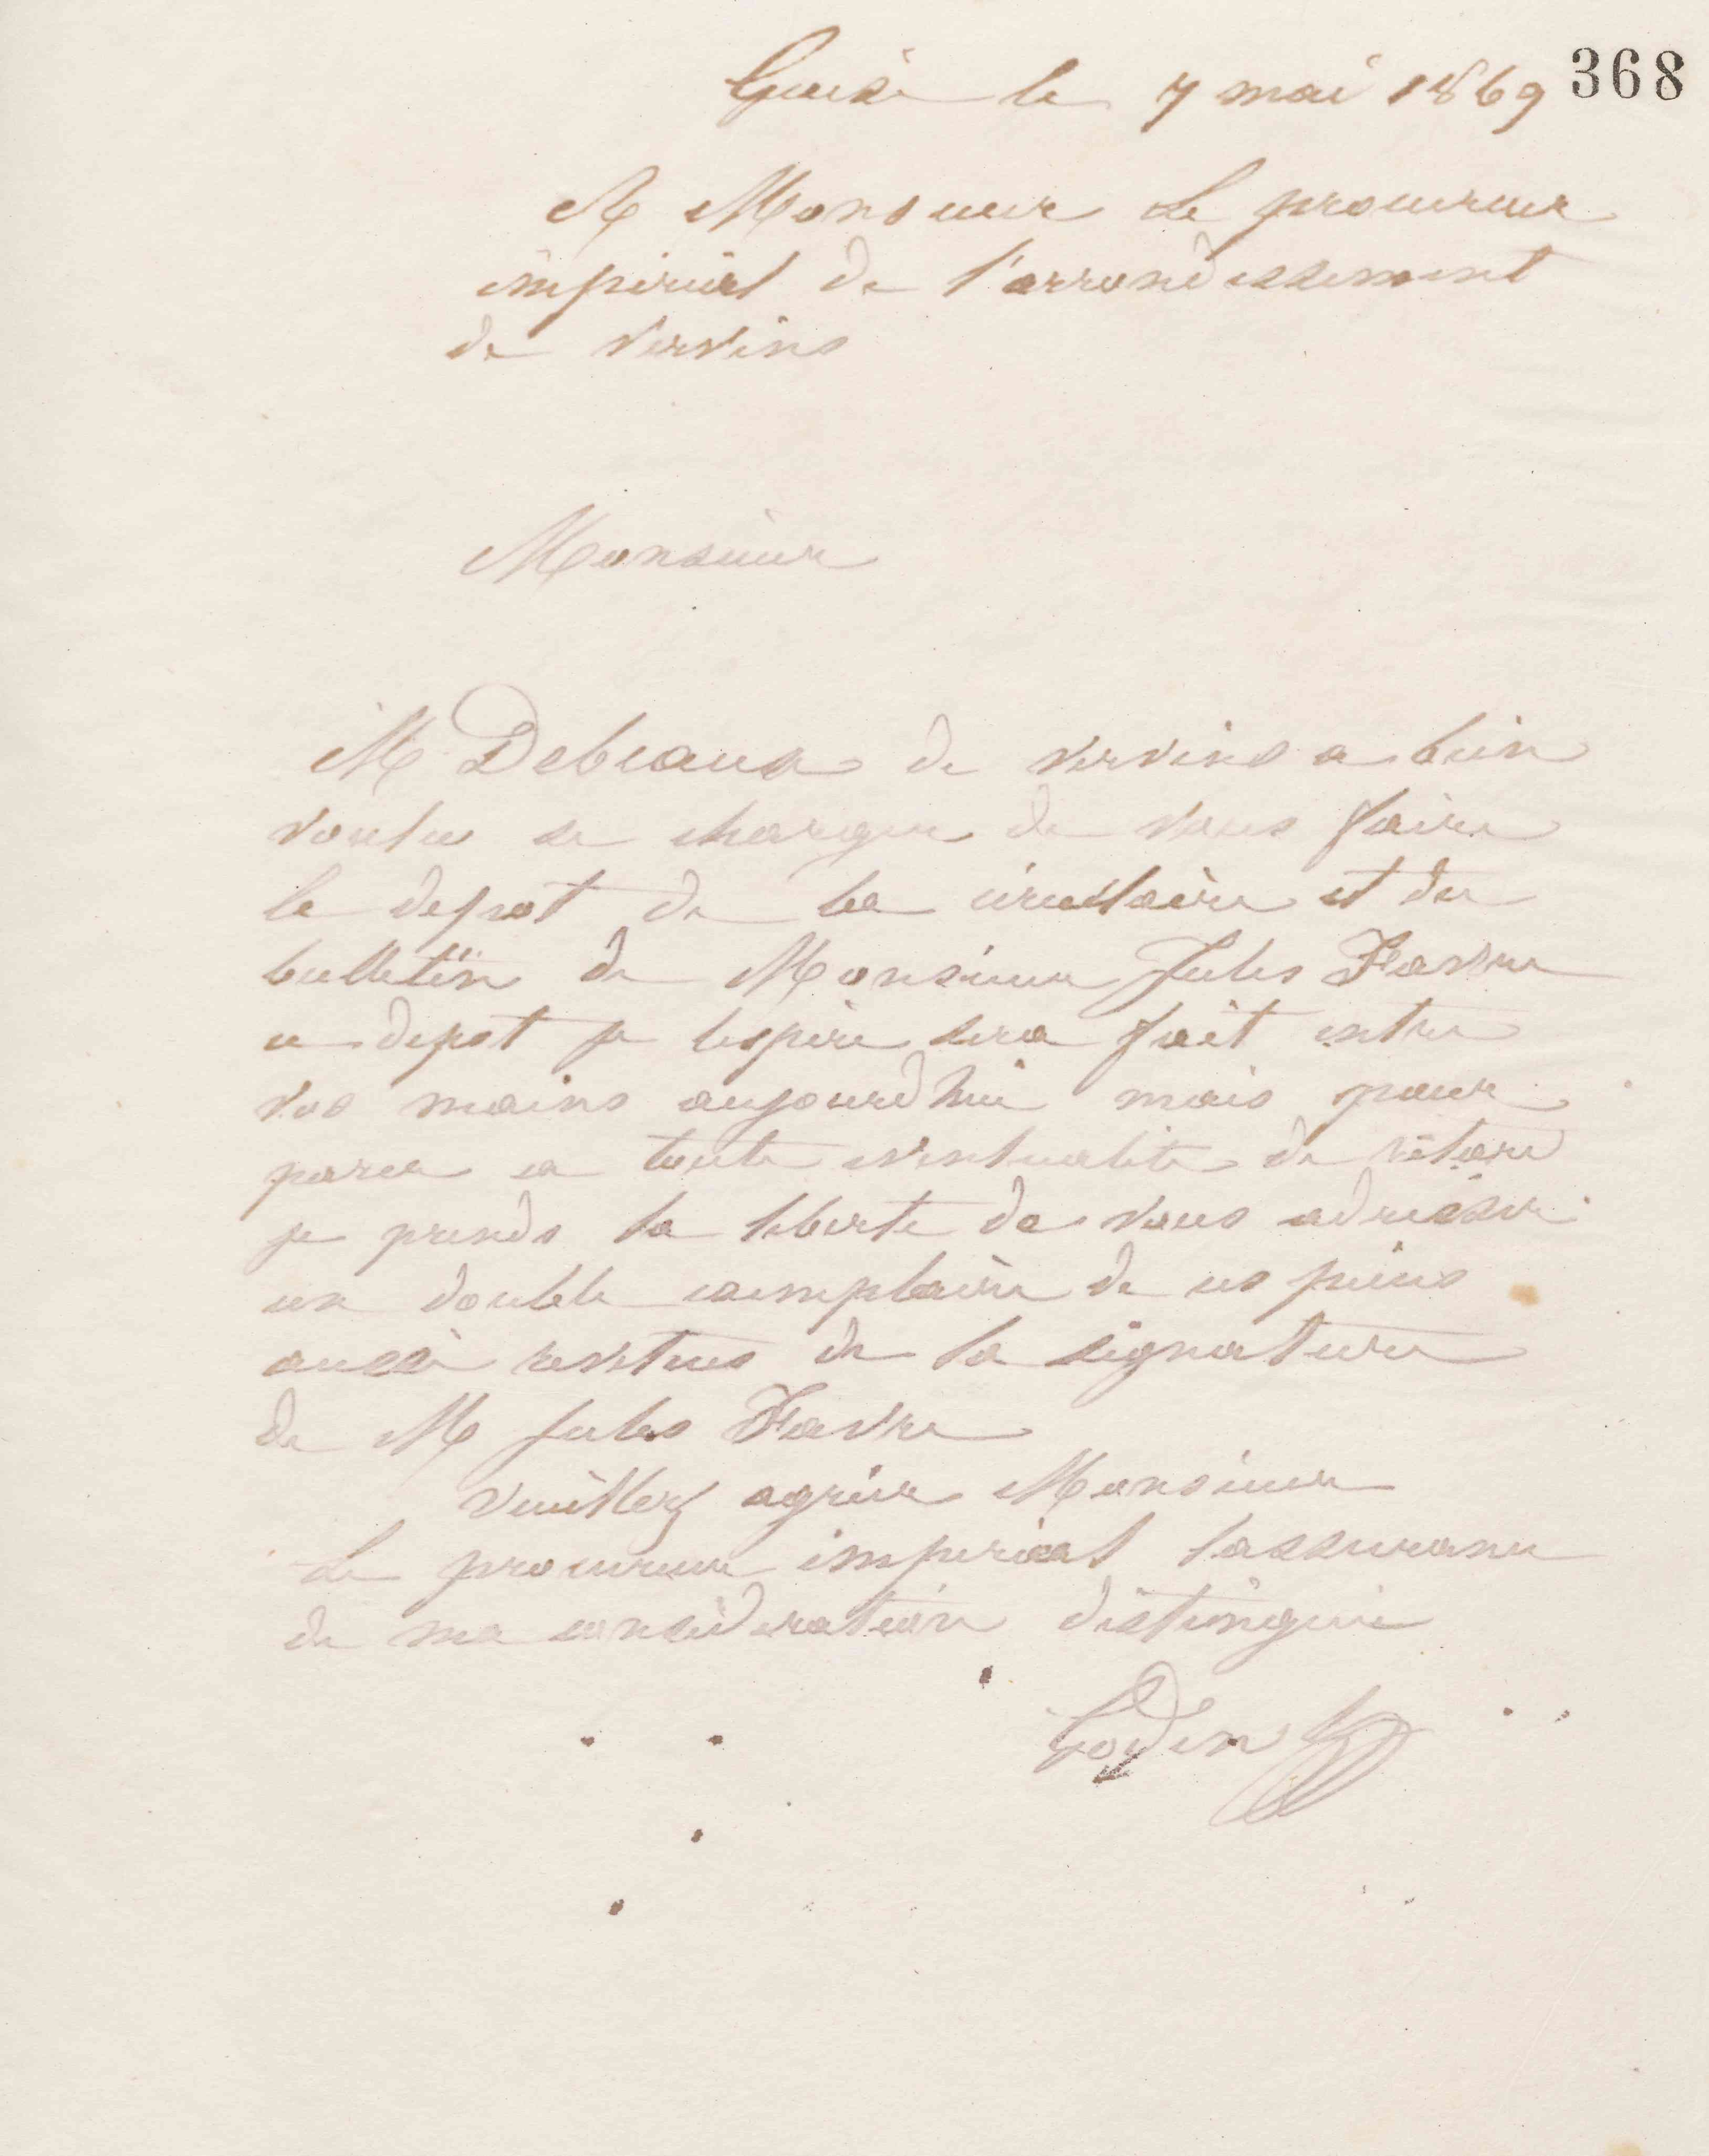 Guise le 7 mai 1869 368
A Monsieur Le procureur
impérial de l'arrondissement
de Vervins
Monsieur
M Debeaux de Vervins a bien
voulu se charger de vous faire
le depot de la circulaire et du
bulletin de Monsieur Jules Favre
ce depot je lespère sera fait entre
vos mains aujourdhui mais pour
parer a toute eventualité de retard
je prends la liberté de vous adresser
un double exemplaire de ces pièces
aussi revetues de la signature
de M Jules Favre
Veuillez agréer Monsieur
Le procureur imperial lassurance
de ma considération distinguée
Godin